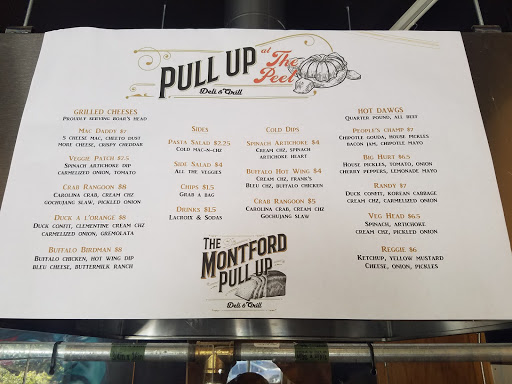 PULL UP at The Peel
Deli & Grill
GRILLED CHEESES
PROUDLY SERVING BOAR'S HEAD
MAC DADDY $7
5 CHEESE MAC, CHEETO DUST
MORE CHEESE, CRISPY CHEDDAR
VEGGIE PATCH $7.5
SPINACH ARTICHOKE DIP
CARMELIZED ONION, TOMATO
CRAB RANGOON $8
CAROLINA CRAB, CREAM CHZ
GOCHUJANG SLAW, PICKLED ONION
DUCK A L'ORANGE $8
DUCK CONFIT, CLEMENTINE CREAM CHZ
CARMELIZED ONION, GREMOLATA
BUFFALO BIRDMAN $8
BUFFALO CHICKEN, HOT WING DIP
BLEU CHEESE, BUTTERMILK RANCH
SIDES
PASTA SALAD $2.25
COLD MAC-N-CHZ
SIDE SALAD $4
ALL THE VEGGIES
CHIPS $1.5
GRAB A BAG
DRINKS $1.5
LACROIX & SODAS
COLD DIPS
SPINACH ARTICHOKE $4
CREAM CHZ, SPINACH
ARTICHOKE HEART
BUFFALO HOT WING $4
CREAM CHZ, FRANK'S
BLEU CHZ, BUFFALO CHICKEN
CRAB RANGOON $5
CAROLINA CRAB, CREAM CHZ
GOCHUJANG SLAW
THE
MONTFORD
PULL UP
Deli & Grill
HOT DAWGS
QUARTER POUND, ALL BEEF
PEOPLE'S CHAMP $7
CHIPOTLE GOUDA, HOUSE PICKLES
BACON JAM, CHIPOTLE MAYO
BIG HURT $6.5
HOUSE PICKLES, TOMATO, ONION
CHERRY PEPPERS, LEMONADE MAYO
RANDY $7
DUCK CONFIT, KOREAN CABBAGE
CREAM CHZ, CARMELIZED ONION
VEG HEAD $6.5
SPINACH, ARTICHOKE
CREAM CHZ, PICKLED ONION
REGGIE $6
KETCHUP, YELLOW MUSTARD
CHEESE, ONION, PICKLES